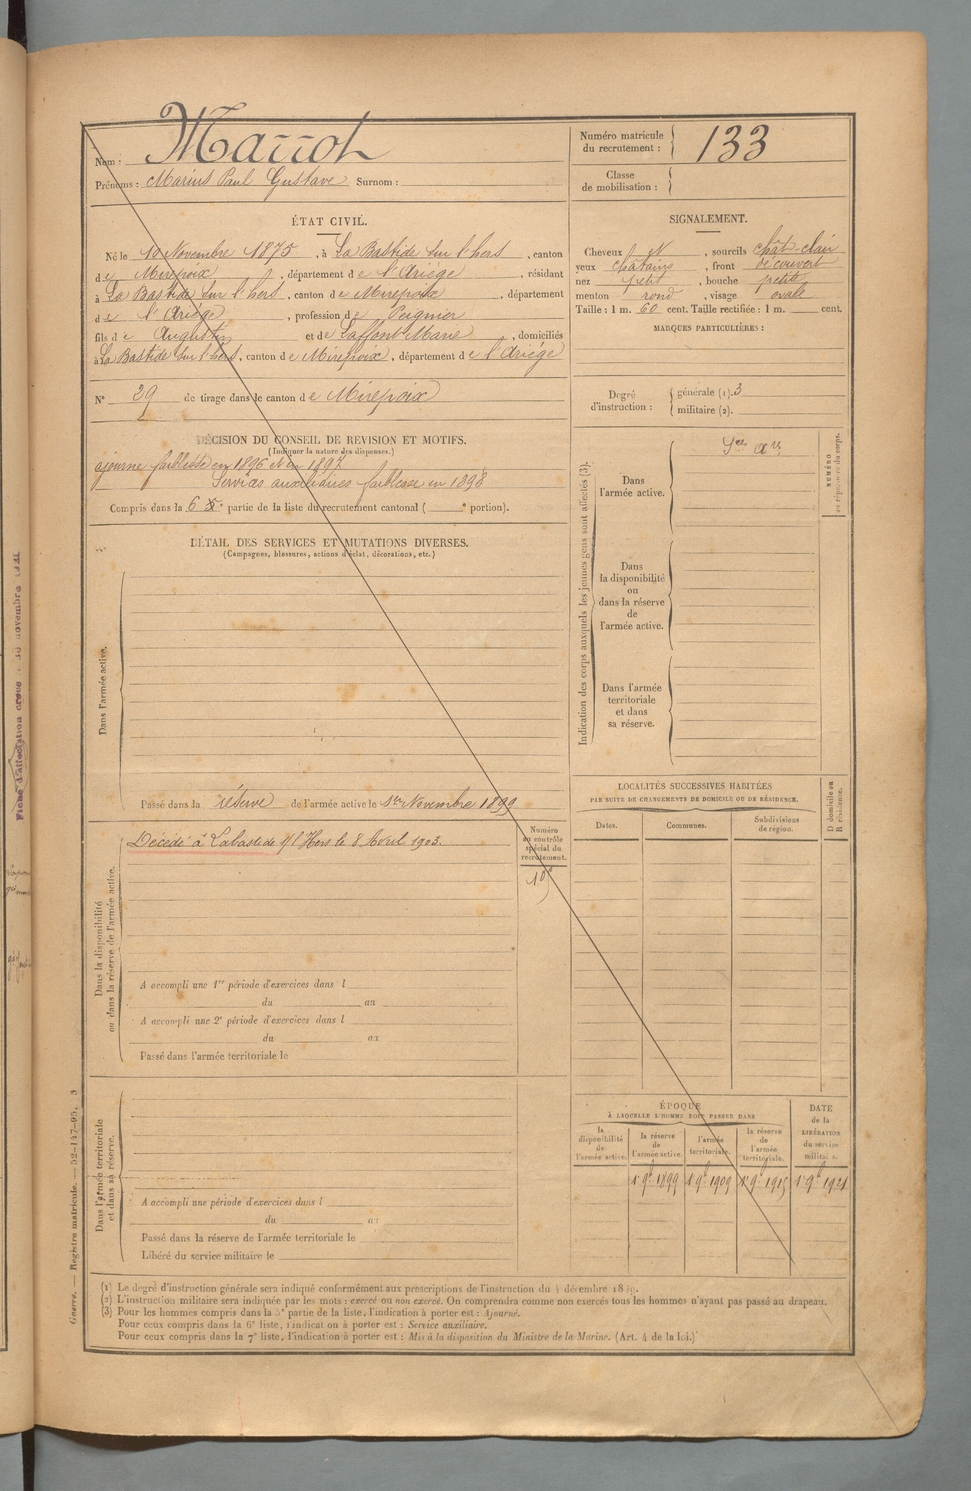 Nom : Marrot
Prénoms : Marius Paul Gustave Surnom :
Numéro matricule du recrutement : 133
Classe de mobilisation :
ÉTAT CIVIL.
Né le 10 Novembre 1875, à La Bastide sur l'hers, canton
de Mirepoix, département de l'Ariège, résidant
à La Bastide sur l'hers, canton de Mirepoix, département
de l'Ariège, profession de Peignier
fils de Augustin et de Laffont Marie, domiciliés
à La Bastide sur l'hers, canton de Mirepoix, département de l'Ariège
N° 29 de tirage dans le canton de Mirepoix
SIGNALEMENT.
Cheveux N, sourcils chât-clair
yeux châtains, front découvert
nez petit, bouche petite
menton rond, visage ovale
Taille : 1 m. 60 cent. Taille rectifiée : 1 m. cent.
MARQUES PARTICULIÈRES :
Degré d'instruction :
générale (1). 3
militaire (2).
DÉCISION DU CONSEIL DE REVISION ET MOTIFS.
(Indiquer la nature des dispenses.)
ajourné faiblesse en 1896 et en 1897
Services auxiliaires faiblesse en 1898
Compris dans la 6e partie de la liste du recrutement cantonal ( e portion).
DÉTAIL DES SERVICES ET MUTATIONS DIVERSES.
(Campagnes, blessures, actions d'éclat, décorations, etc.)
Dans l'armée active.
Passé dans la réserve de l'armée active le 1er Novembre 1899
Dans la disponibilité ou dans la réserve de l'armée active.
Décédé à Labastide s/ l'Hers le 8 Avril 1903.
Numéro au contrôle spécial du recrutement.
A accompli une 1re période d'exercices dans l
du au
A accompli une 2e période d'exercices dans l
du au
Passé dans l'armée territoriale le
Dans l'armée territoriale et dans sa réserve.
A accompli une période d'exercices dans l
du au
Passé dans la réserve de l'armée territoriale le
Libéré du service militaire le
Indication des corps auxquels les jeunes gens sont affectés (3).
NUMÉRO au répertoire du corps.
Dans l'armée active.
Sces aux
Dans la disponibilité ou dans la réserve de l'armée active.
Dans l'armée territoriale et dans sa réserve.
LOCALITÉS SUCCESSIVES HABITÉES
PAR SUITE DE CHANGEMENTS DE DOMICILE OU DE RÉSIDENCE.
Dates. Communes. Subdivisions de région. D domicile ou R résidence.
ÉPOQUE
À LAQUELLE L'HOMME DOIT PASSER DANS
la disponibilité de l'armée active.
la réserve de l'armée active.
l'armée territoriale.
la réserve de l'armée territoriale.
DATE de la LIBÉRATION du service militaire.
1 9b 1899 1 9b 1909 1 9b 1915 1 9b 1921
(1) Le degré d'instruction générale sera indiqué conformément aux prescriptions de l'instruction du 4 décembre 1889.
(2) L'instruction militaire sera indiquée par les mots : exercé ou non exercé. On comprendra comme non exercés tous les hommes n'ayant pas passé au drapeau.
(3) Pour les hommes compris dans la 5e partie de la liste, l'indication à porter est : Ajourné.
Pour ceux compris dans la 6e liste, l'indication à porter est : Service auxiliaire.
Pour ceux compris dans la 7e liste, l'indication à porter est : Mis à la disposition du Ministre de la Marine. (Art. 4 de la loi.)
Guerre. — Registre matricule. — 52-147-95. 3